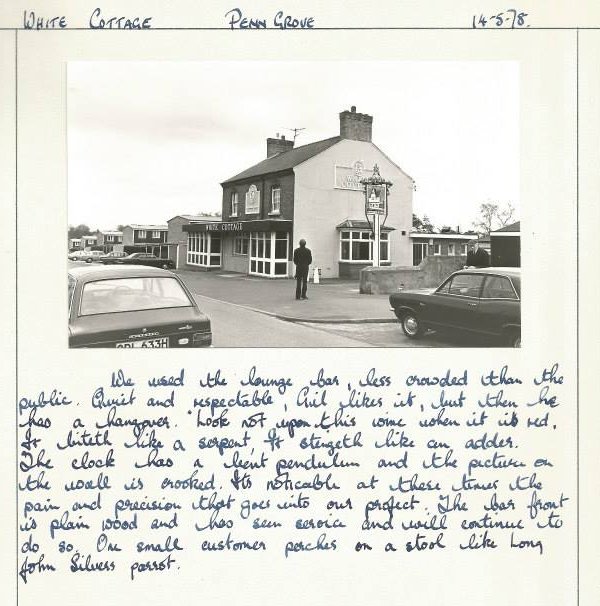 WHITE COTTAGE PENN GROVE 14-5-78.
WHITE COTTAGE
633H
We used the lounge bar, less crowded than the
public. Quiet and respectable, Gil likes it, but then he
has a hangover. "Look not upon this wine when it is red,
It biteth like a serpent, It stingeth like an adder.
The clock has a bent pendulum and the picture on
the wall is crooked. Its noticable at these times the
pain and precision that goes into our project. The bar front
is plain wood and has seen service and will continue to
do so. One small customer perches on a stool like Long
John Silvers parrot.